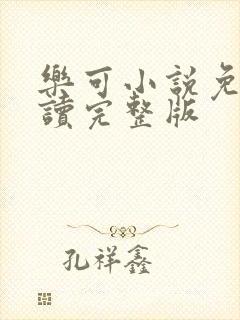 樂可小說免
讀完整版
孔祥鑫